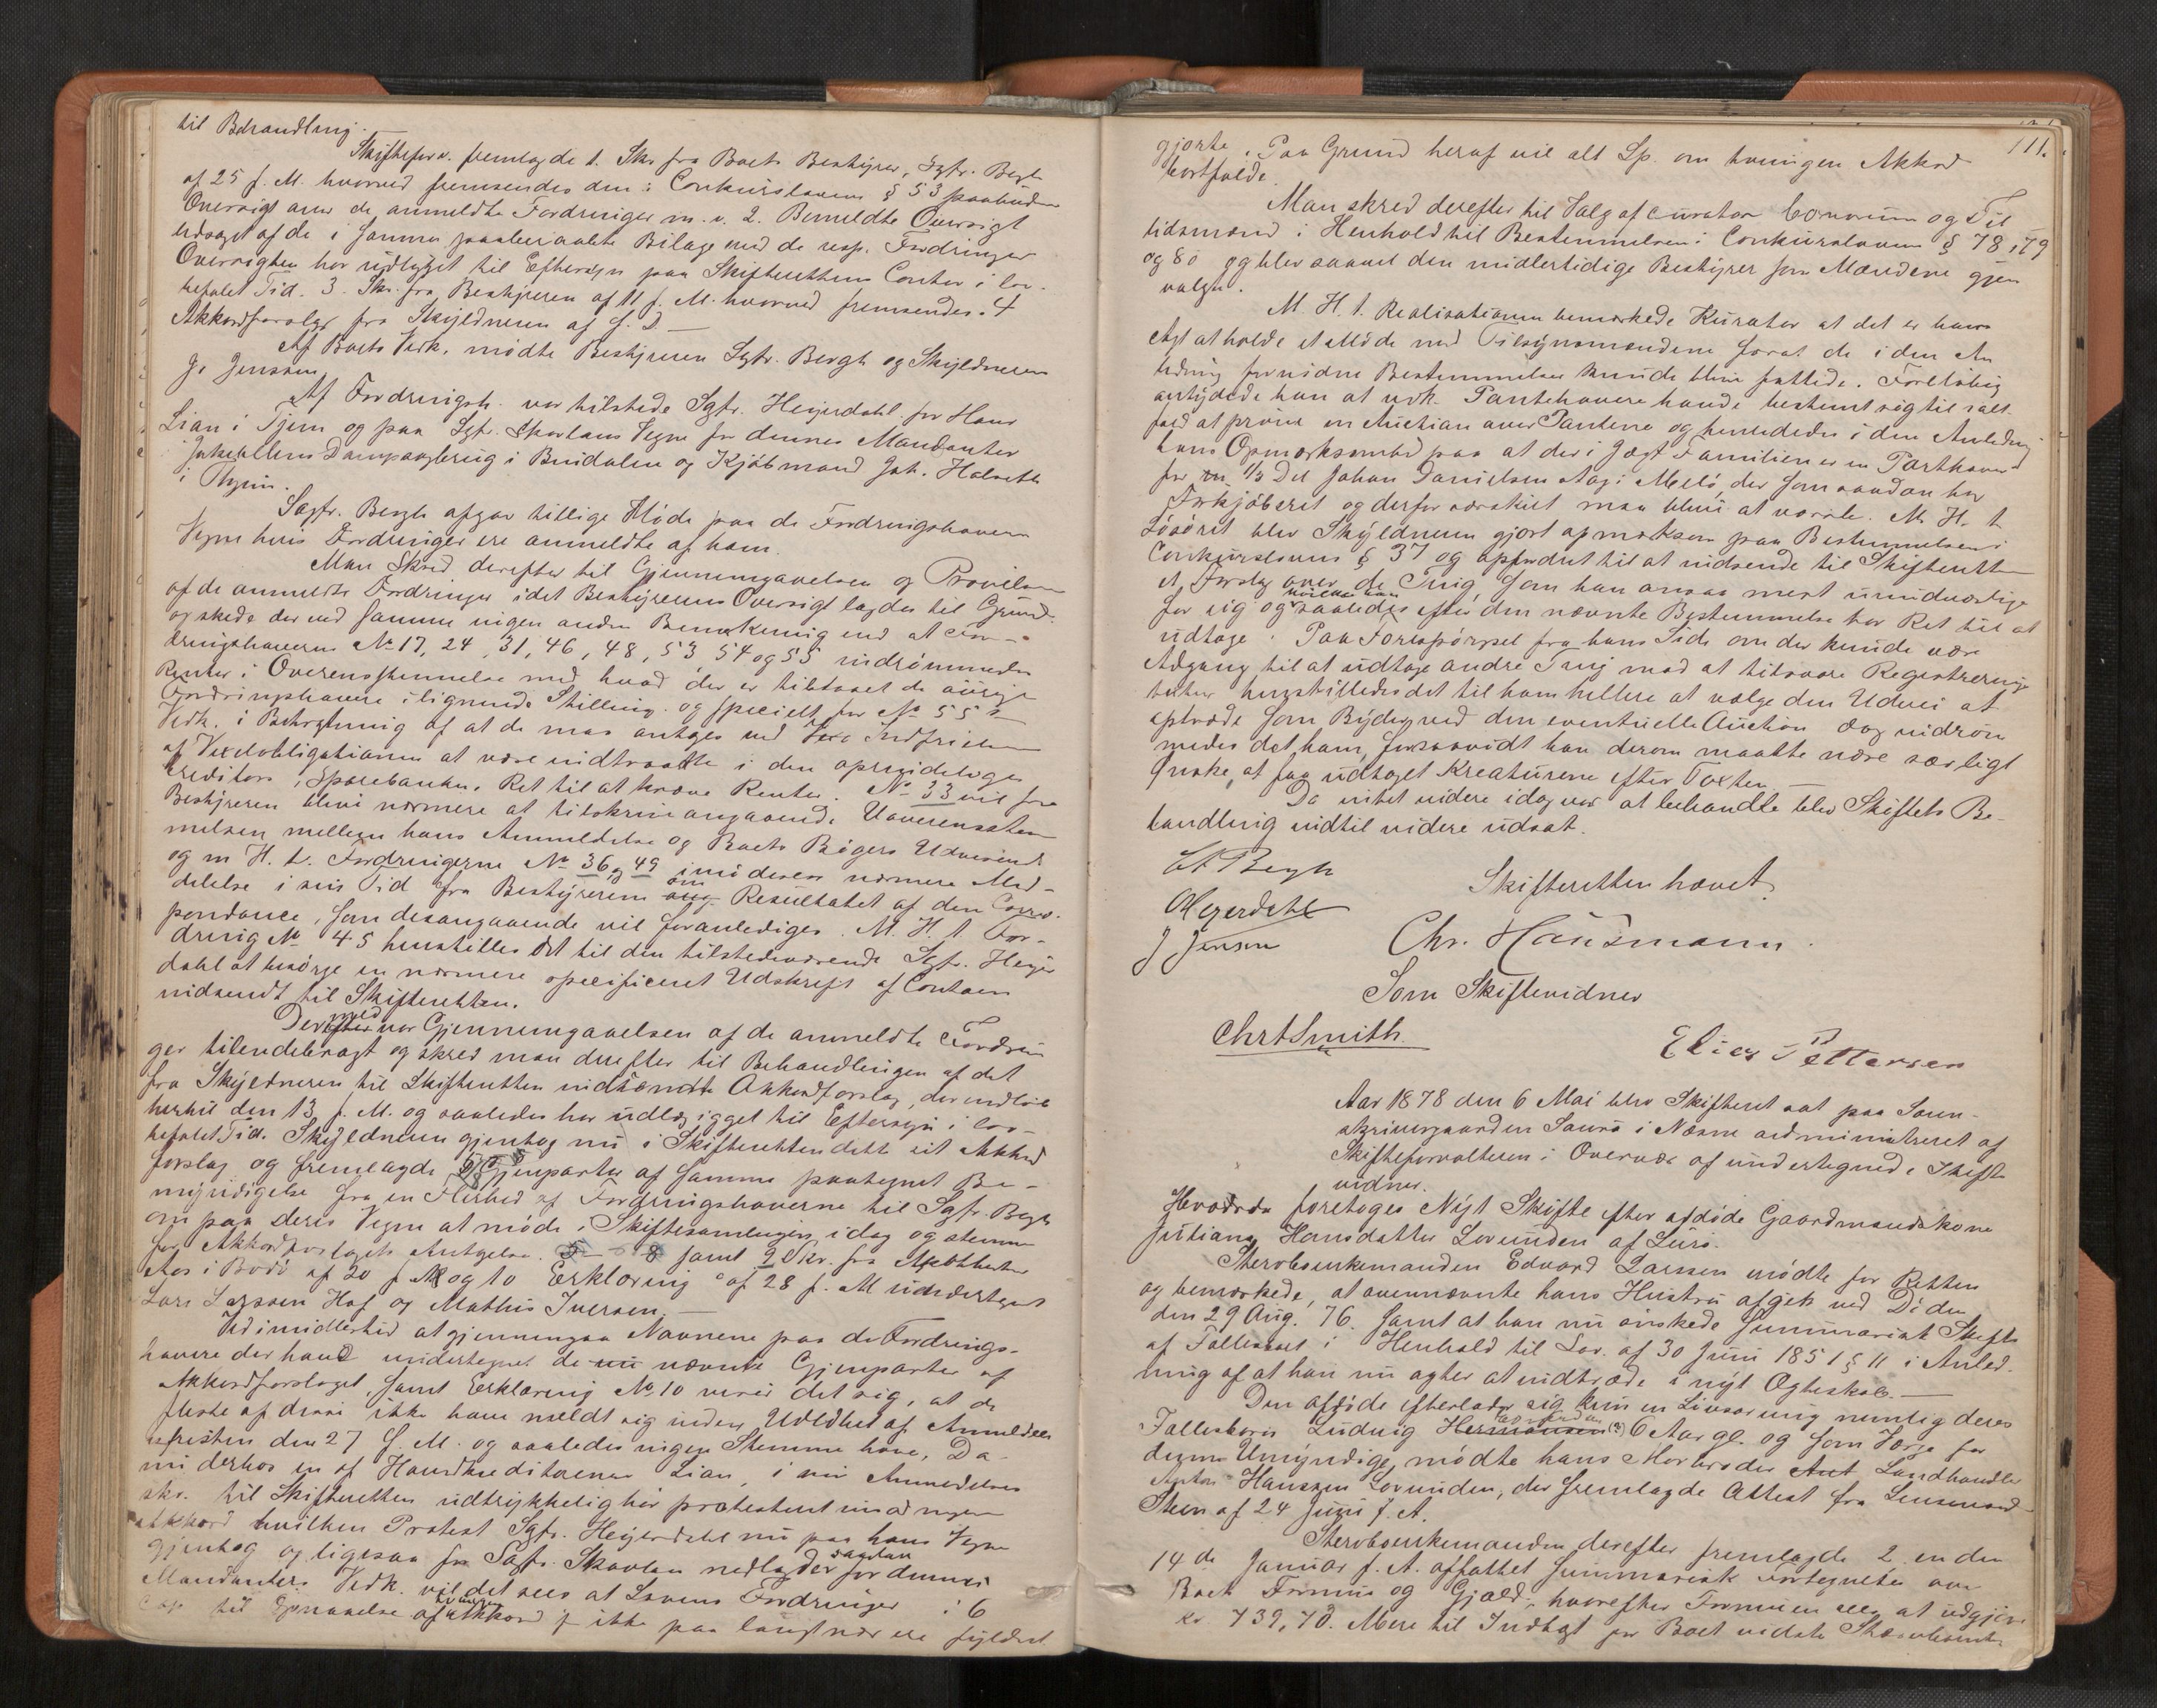 til Behandling.
Skifteforv. fremlagde 1. Skr fra Boets Bestyrer, Sgfr. Bergh
af 25 f. M. hvorved fremsendes den i Conkursloven § 53 paabudne
Oversigt over de anmeldte Fordringer m. v. 2. Bemeldte Oversigt
ledsaget af de i samme paaberaabte Bilage med de resp. Fordringer
Oversigten har udligget til Eftersyn paa Skifterettens Contor i lov-
befalet Tid. 3. Skr. fra Bestyreren af 11 f. M. hvorved fremsendes. 4
Akkordforslag fra Skyldneren af s. D. —
Af Boets Vedk. mødte Bestyreren Sgfr. Bergh og Skyldneren
J. Jenssen
Af Fordringsh. var tilstede Sgfr. Heyerdahl for Hans
Lian i Tjem og paa Sgfr. Skavlans Vegne for dennes Mandanter
Dampsagbrug i Bindalen og Kjøbmand Joh. Halseth
i Thjem.
Sagfr. Bergh afgav tillige Møde paa de Fordringshavere
Vegne hvis Fordringer ere anmeldte af ham.
Man skred derefter til Gjennemgaaelsen og Prøvelsen
af de anmeldte Fordringer idet Bestyrerens Oversigt lagdes til Grund
og skede der ved samme ingen anden Bemærkning end at For-
dringshaverne No 17, 24, 31, 46, 48, 53, 54 og 55 indrømmedes
Renter i Overensstemmelse med hvad der er tilstaaet de øvrige
Fordringshavere i lignende Stilling og specielt for No 55s
Vedk. i Betragtning af at de maa antages ved Indfrielsen
af Vexelobligationen at være indtraadte i den oprindelige
Creditors, Sparebankens Ret til at kræve Renter. No 33 vil fra
Bestyreren blive nærmere at tilskrive angaaende Uoverensstem
melsen mellem hans Anmeldelse og Boets Bøgers Udvisende
og m. H. t. Fordringerne No 36 og 49 imødesees nærmere Med-
delelse i sin Tid fra Bestyreren om Resultatet af den Corres-
pondance, som desangaaende vil foranlediges. M. H. t. For-
dring No 45 henstilles det til den tilstedeværende Sgfr. Heyer
dahl at besørge en nærmere specificeret Udskrift af Contoen
indsendt til Skifteretten.
Dermed var Gjennemgaaelsen af de anmeldte Fordrin
ger tilendebragt og skred man derefter til Behandlingen af det
fra Skyldneren til Skifteretten indsendte Akkordforslag, der indløb
hertil den 13 f. M. og saaledes har udligget til Eftersyn i lov-
befalet Tid. Skyldneren gjentog nu i Skifteretten dette sit Akkord
forslag og fremlagde Gjenparter af samme paategnet Be-
myndigelse fra en Flerhed af Fordringshaverne til Sgfr. Bergh
om paa deres Vegne at møde i Skiftesamlingen idag og stemme
for Akkordforslagets Antagelse. 5 – 8 samt 9 Skr. fra Apotheker
Aas i Bodø af 20 f. M og 10 Erklæring af 28 f. M undertegnet
Lars Larssen Hof og Mathis Iversen. —
Ved imidlertid at gjennemgaa Navnene paa de Fordrings-
havere der havde undertegnet de nu nævnte Gjenparter af
Akkordforslaget, samt Erklæring No 10 viser det sig, at de
fleste af disse ikke have meldt sig inden Udløbet af Anmeldel
sfristen den 27 f. M. og saaledes ingen Stemme have. Da
nu derhos en af Haandkreditorerne Lian, i sin Anmeldelses
skr. til Skifteretten udtrykkelig har protesteret imod nogen
Akkord hvilken Protest Sgfr. Heyerdahl nu paa hans Vegne
gjentog og ligesaa fra Sagfr. Skavlan nedlagdes saadan for dennes
Mandanters Vedk. vil det sees at Lovens Fordringer i 6
Cap til Opnaaelse af tvungen Akkord ikke paa langt nær ere fyldest
111.
gjorte. Paa Grund heraf vil alt Sp. om tvungen Akkord
bortfalde.
Man skred derefter til Valg af curator bonorum og Til
lidsmænd i Henhold til Bestemmelsen i Conkursloven § 78, 79
og 80 og blev saavel den midlertidige Bestyrer som Mændene gjen
valgte.
M. H. t. Realisationen bemærkede Kurator at det er hans
Agt at holde et Møde med Tilsynsmændene forat de i den An
ledning fornødne Bestemmelser kunde blive fattede. Foreløbig
antydede han at vedk. Panthavere havde bestemt sig til ialt
fald at prøve en Auction over Panterne og henlededes i den Anledning
hans Opmærksomhed paa at der i Jægt Familien er en Parthaver
for en 1/3 Del Johan Danielsen Aag i Melø, der som saadan har
Forkjøbsret og derfor særskilt maa blive at varsle. M. H. t.
Løsøret blev Skyldneren gjort opmærksom paa Bestemmelsen i
Conkurslovens § 37 og opfordret til at indsende til Skifteretten
et Forslag over de Ting, som han ansaa mest umidværlige
for sig og hvilke han saaledes efter den nævnte Bestemmelse har Ret til at
udtage. Paa Forespørgsel fra hans Side om der kunde være
Adgang til at udtage andre Ting mod at tilsvare Registrerings
taxten henstilledes det til ham hellere at vælge den Udvei at
optræde som Byder ved den eventuelle Auction dog indrøm
medes det ham, forsaavidt han derom maatte nære særligt
Ønske, at faa udtaget Kreaturene efter Taxten. —
Da intet videre idag var at behandle blev Skiftets Be-
handling indtil videre udsat.
Bergh
Skifteretten hævet.
Heyerdahl
J Jensen
Chr. Hausmann.
Som Skiftevidner
Chr Smith.
Elias Pettersen
Aar 1878 den 6 Mai blev Skifteret sat paa Soren-
skrivergaarden Saura i Næsne administreret af
Skifteforvalteren i Overvær af undertegnede Skifte
vidner.
Hvorda foretoges Nyt Skifte efter afdøde Gaardmandskone
Juliana Hansdatter Lovunden af Lurø.
Stervbosenkemanden Edvard Larssen mødte for Retten
og bemærkede, at ovennævnte hans Hustru afgik ved Døden
den 29 Aug. 76. samt at han nu ønskede summarisk Skifte
af Fællesboet i Henhold til Lov. af 30 Juni 1851 § 11 i Anled-
ning af at han nu agter at indtræde i nyt Ægteskab. —
Den afdøde efterlader sig kun en Livsarving nemlig deres
Fællesbarn Ludvig Hermansen (?) 6 Aar gl. og som Værge for
denne Umyndige, mødte hans Morbroder Ant Landhandler
Anton Hanssen Lovunden, der fremlagde Attest fra Lensmand
Steen af 24 Juni f. A.
Stervbosenkemanden derefter fremlagde 2. en den
14de Januar f. A. affattet summarisk Fortegnelse over
Boets Formue og Gjæld, hvorefter Formuen sees at udgjøre
Kr 739,70. Mere til Indtægt for Boet vidste Stervbosenke-